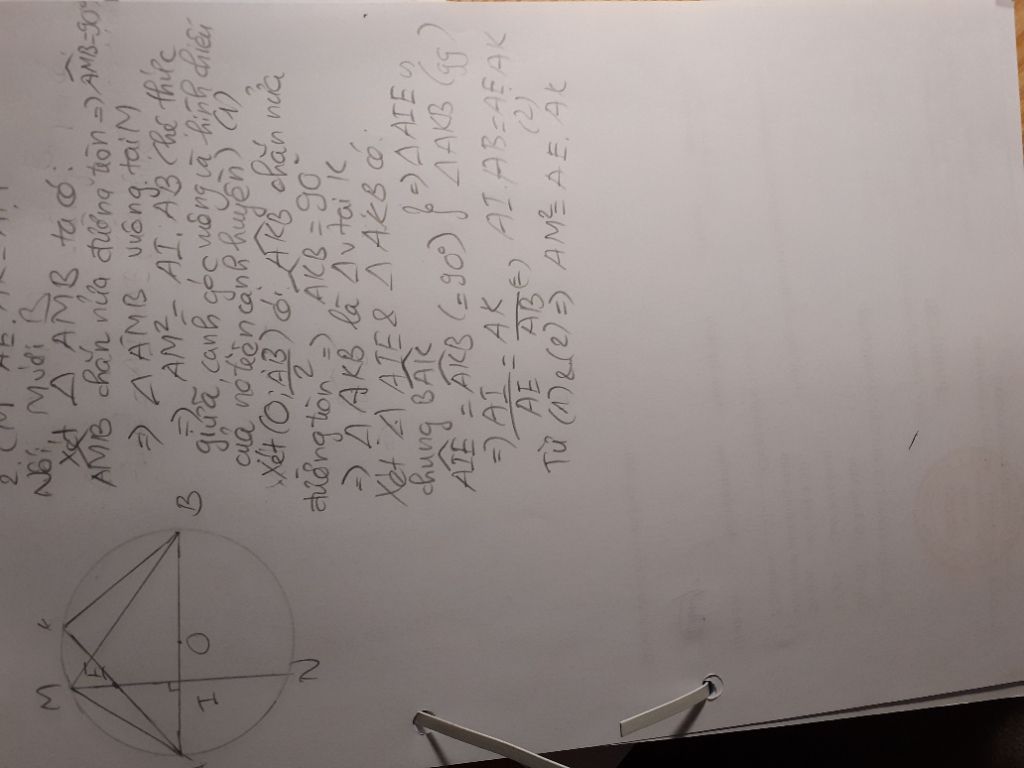 2. CM AE. AK = AM²
Nối M với B
Xét △ AMB ta có:
AMB chắn nửa đường tròn => AMB=90°
=> △ AMB vuông tại M
=> AM² = AI. AB (hệ thức
giữa cạnh góc vuông và hình chiếu
của nó lên cạnh huyền) (1)
Xét (O; AB/2) có AKB chắn nửa
đường tròn => AKB = 90°
=> △ AKB là △ v tại K
Xét △ AIE & △ AKB có:
chung BAK
AIE = AKB (=90°) } => △ AIE ∽ △ AKB (gg)
=> AI/AE = AK/AB (=) AI.AB=AE.AK (2)
Từ (1)&(2) => AM² = AE. AK
M
K
E
B
I
O
N